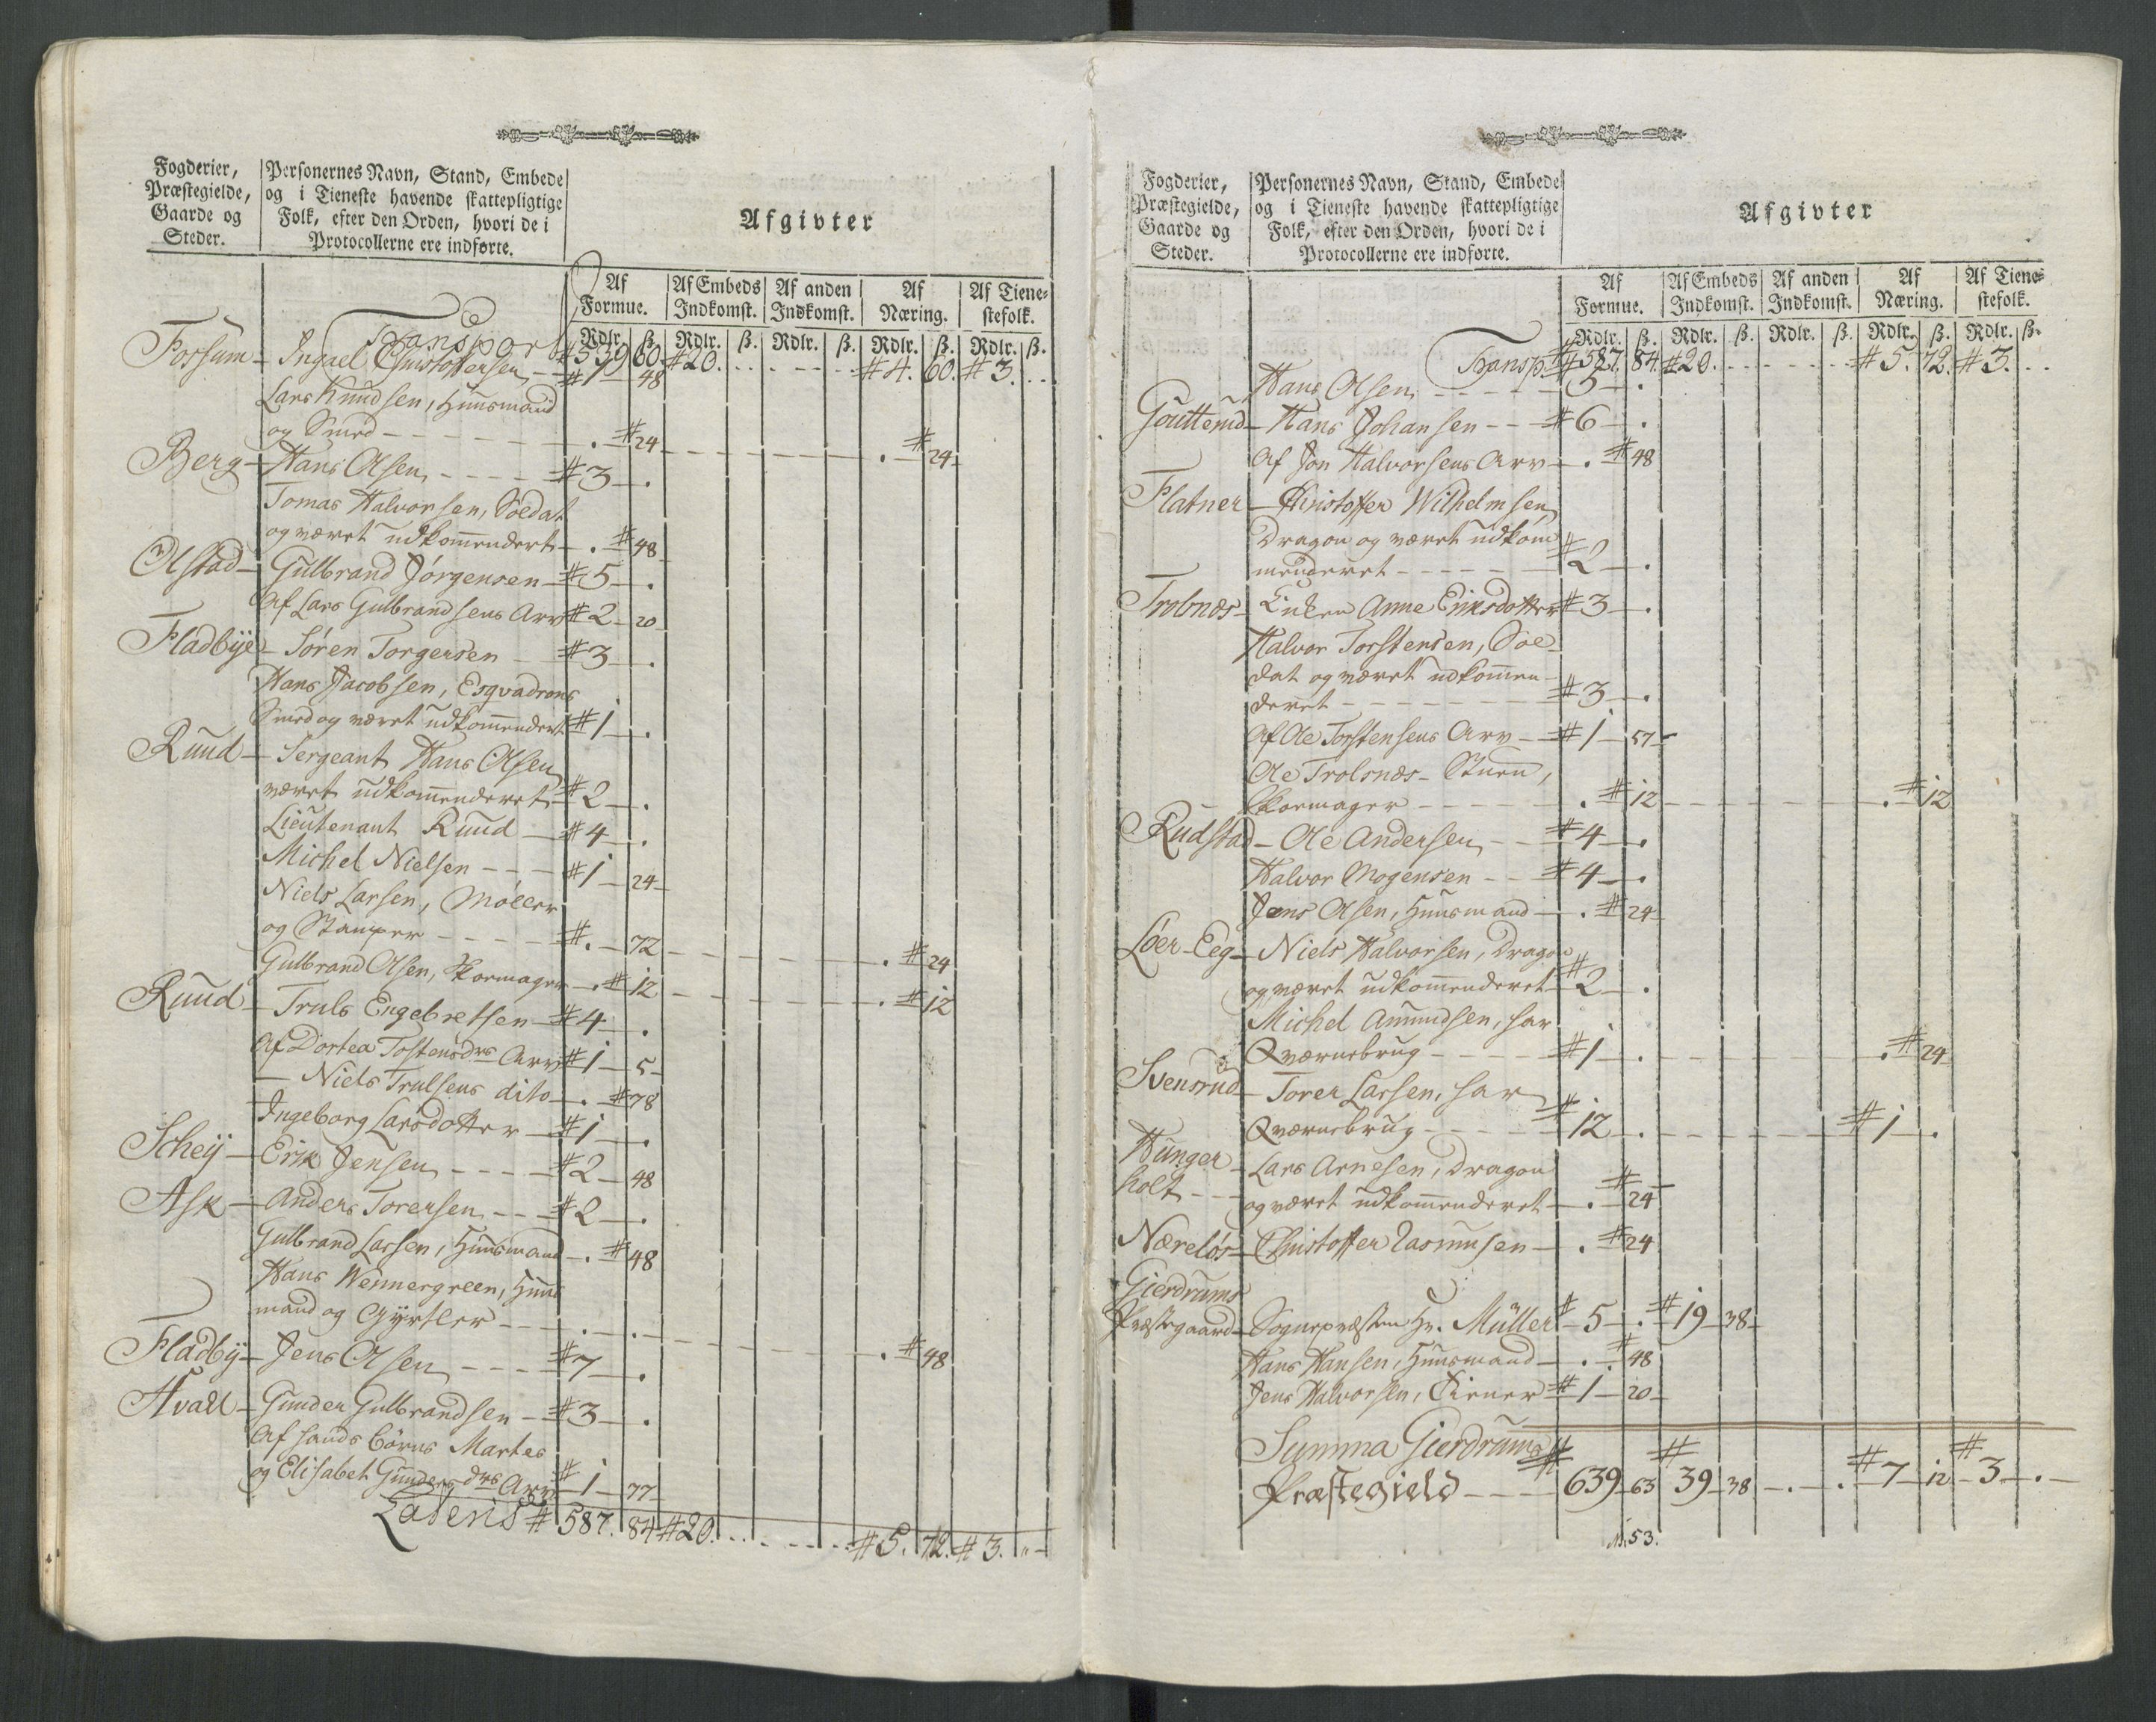 Fogderier,
Præstegielde,
Gaarde og
Steder.
Personernes Navn, Stand, Embede
og i Tieneste havende skattepligtige
Folk, efter den Orden, hvori de i
Protocollerne ere indførte.
Afgivter
Af Formue. Af Embeds Indkomst. Af anden Indkomst. Af Næring. Af Tienestefolk.
Rdlr. ß. Rdlr. ß. Rdlr. ß. Rdlr. ß. Rdlr. ß.
Transport # 539 60 # 20. # 4. 60. # 3.
Fossum - Ingael Christoffersen # 1 - 48
Lars Knudsen, Huusmand
og Smed - . # 24 . # 24
Berg - Hans Olsen # 3 - .
Tomas Halvorsen, Soldat
og været udkommendert - . # 48
Olstad - Gulbrand Jørgensen # 5 - .
Af Lars Gulbrandsens Arv # 2 - 20
Fladbye - Søren Torgersen # 3 - .
Hans Jacobsen, Esqvadrons
Smed og været udkommendert # 1 - .
Ruud - Sergeant Hans Olsen
været udkommenderet # 2 - .
Lieutenant Ruud # 4 - .
Michel Nielsen # 1 - 24
Niels Larsen, Møller
og Stamper # . - 72 . # 24
Gulbrand Olsen, Skomager - . # 12 . # 12
Ruud - Truls Engebretsen # 4 - .
Af Dortea Tostensdrs Arv # 1 - 5
- Niels Trulsens dito - . # 78
Ingeborg Larsdotter # 1 - .
Scheij - Erik Jensen # 2 - 48
Ask - Anders Torersen # 2 - .
Gulbrand Larsen, Huusmand - . # 48
Hans Wennergreen, Huus
mand og Gyrtler - . . # 48
Fladby - Jens Olsen # 7 - .
Hvall - Gunder Gulbrandsen # 3 - .
Af hands børns Martes
og Elisabet Gundersdrs Arv # 1 - 77
Lateris # 587. 84 # 20. # 5. 72. # 3. "
Fogderier,
Præstegielde,
Gaarde og
Steder.
Personernes Navn, Stand, Embede
og i Tieneste havende skattepligtige
Folk, efter den Orden, hvori de i
Protocollerne ere indførte.
Afgivter
Af Formue. Af Embeds Indkomst. Af anden Indkomst. Af Næring. Af Tienestefolk.
Rdlr. ß. Rdlr. ß. Rdlr. ß. Rdlr. ß. Rdlr. ß.
Transp. # 587. 84. # 20. # 5. 72. # 3.
Hans Olsen 5 - .
Goutterud - Hans Johansen # 6 - .
Af Jon Halvorsens Arv - . # 48
Flatner - Christoffer Wilhelmsen
Dragon og været udkom
menderet # 2 - .
Trolsnæs - Enken Anne Eriksdotter # 3 - .
Halvor Torstensen, Sol-
dat og været udkommen-
deret # 3 - .
Af Ole Torstensens Arv # 1 - 57
Ole Trolsnæs-Stuen,
Skomager . # 12 . # 12
Rudstad - Ole Andersen # 4 - .
Halvor Mogensen # 4 - .
Jens Olsen, Huusmand - . # 24
Løer-Eeg - Niels Halvorsen, Dragon
og været udkommenderet # 2 - .
Michel Amundsen, har
Qværnebrug # 1 - . . # 24
Svensrud - Torer Larsen, har
Qværnebrug # 12 - . # 1 - .
Hunger- Lars Arnesen, Dragon
holt - og været udkommenderet - . # 24
Næreløs - Christoffer Rasmusen - . # 24
Gierdrums
Præstegaard - Sognepræsten Hr. Müller # 5 - . # 19 - 38
Hans Hansen, Huusmand - . # 48
Jens Halvorsen, Tiener # 1 - 20
Summa Gierdrums
Præstegield # 639 - 63 # 39 - 38 - . - . # 7 - 12 # 3 - . -
53.